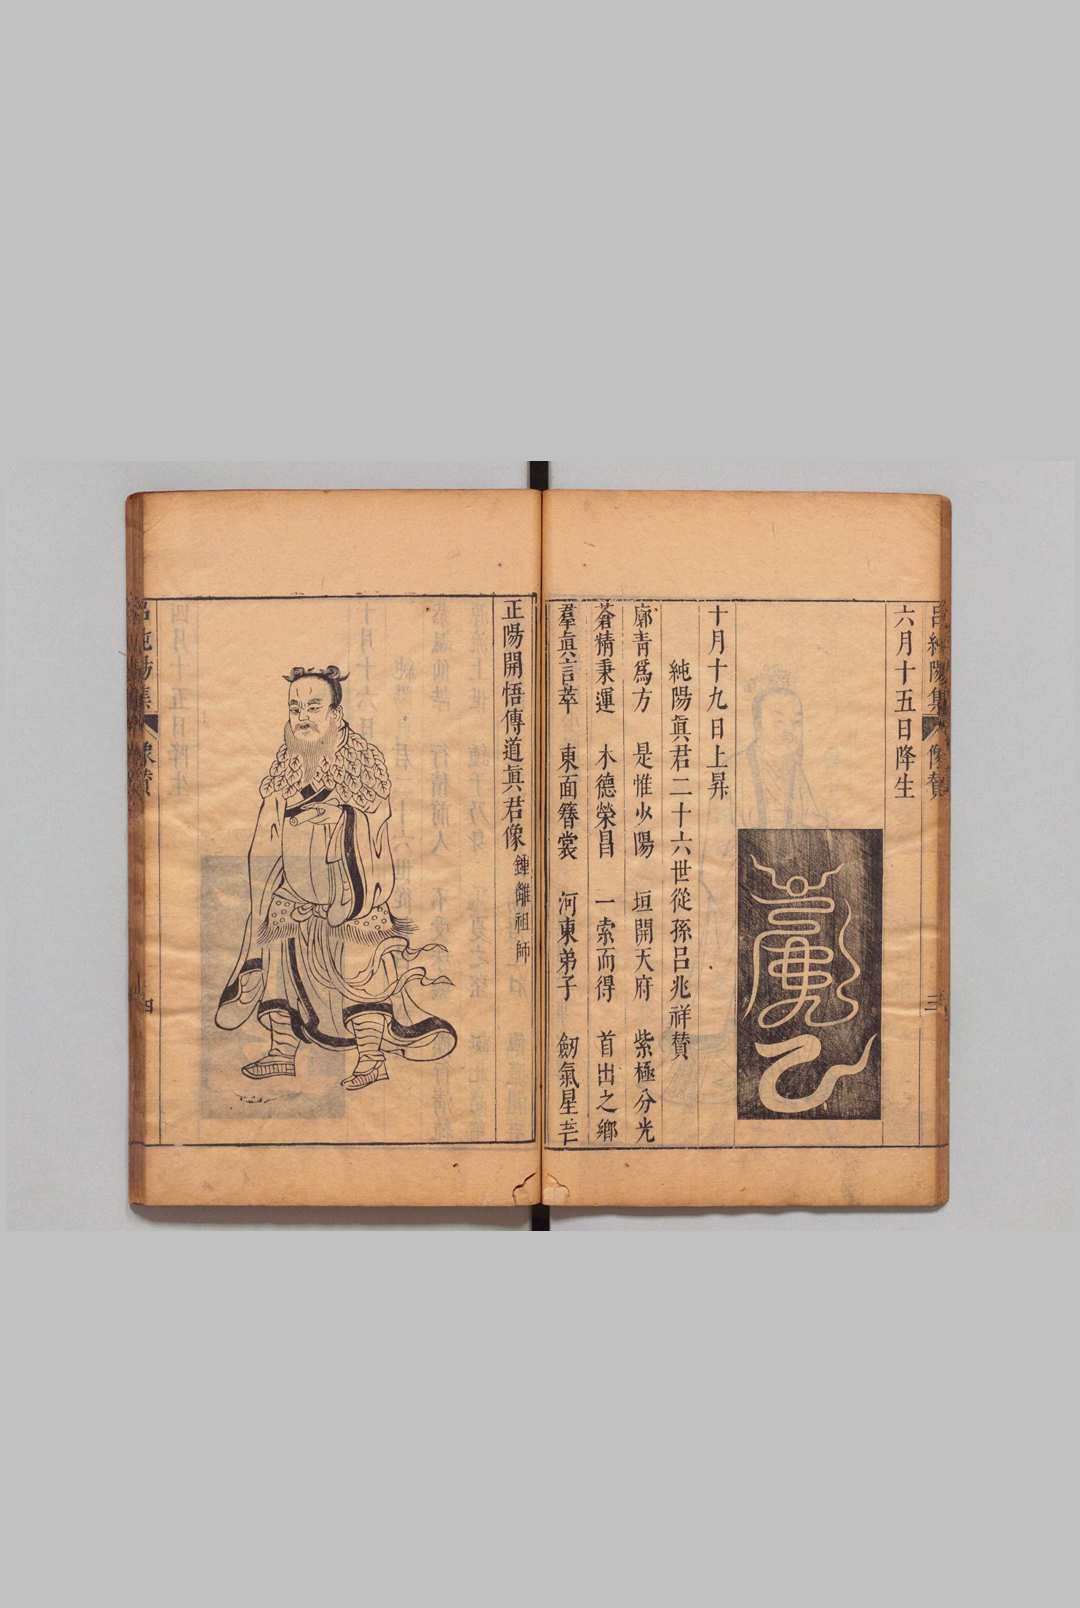 呂純陽集 像贊 三
六月十五日降生
十月十九日上昇
純陽眞君二十六世從孫呂兆祥贊
廓靑爲方 是惟少陽 垣開天府 紫極分光
蒼精秉運 木德榮昌 一索而得 首出之鄉
羣眞言萃 東面簪裳 河東弟子 劒氣星芒
正陽開悟傳道眞君像 鍾離祖師
呂純陽集 像贊 四